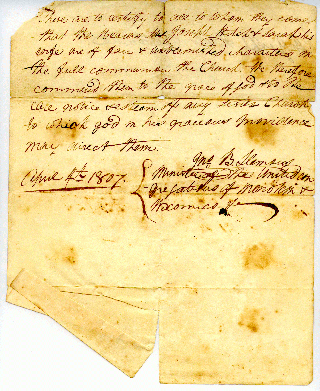 These are to certify to all to whom they come
that the bearers Joseph & Sarah his
wife are of fair & unblemished characters in
the full communion the Church. We therefore
commend them to the grace of god & to the
care notice & esteem of any sister Church
to which god in his gracious Providence
may direct them.
Jno B Slemons
April 4th 1807. Minister of the United con
gregations of Monokin &
Wicomico &c